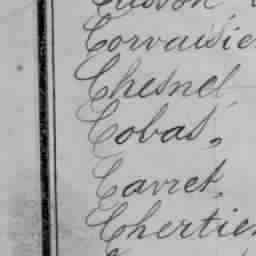 Corvaisie
Chesnel
Cobas.
Carret.
Chertier